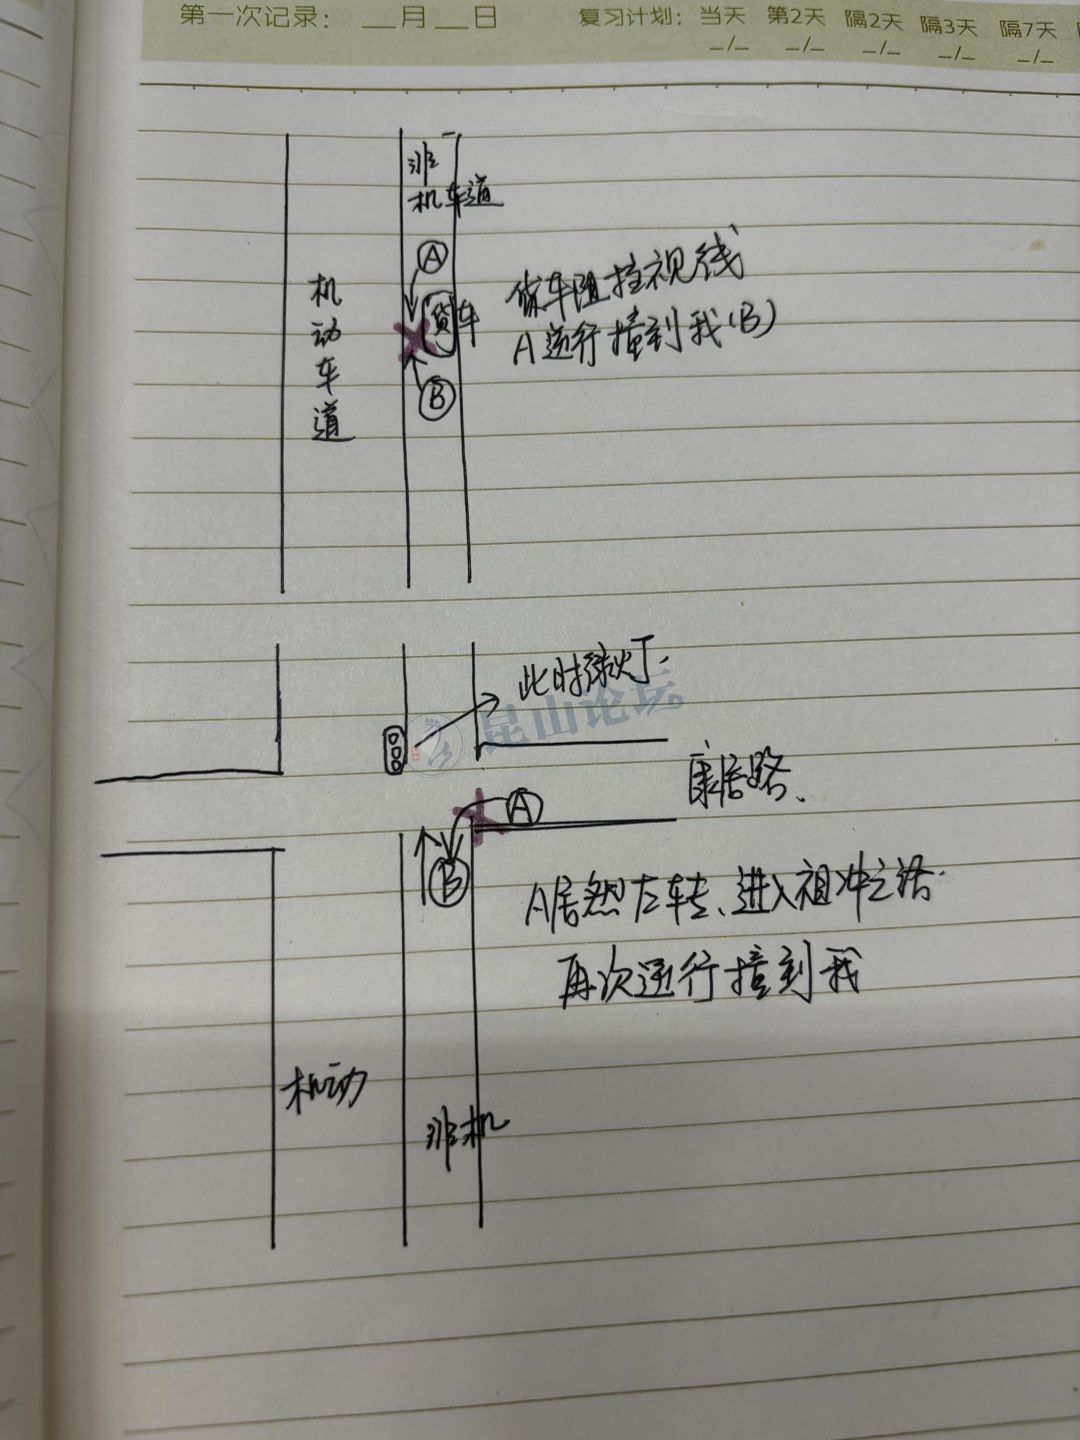 第一次记录：__月__日
复习计划：当天 第2天 隔2天 隔3天 隔7天
_/_ _/_ _/_ _/_ _/_
非
机车道
A
机动车道
货车
B
货车阻挡视线
A逆行撞到我(B)
此时绿灯.
昆山论坛
康居路、
A
B
A居然左转、进入祖冲之路.
再次逆行撞到我
机动
非机